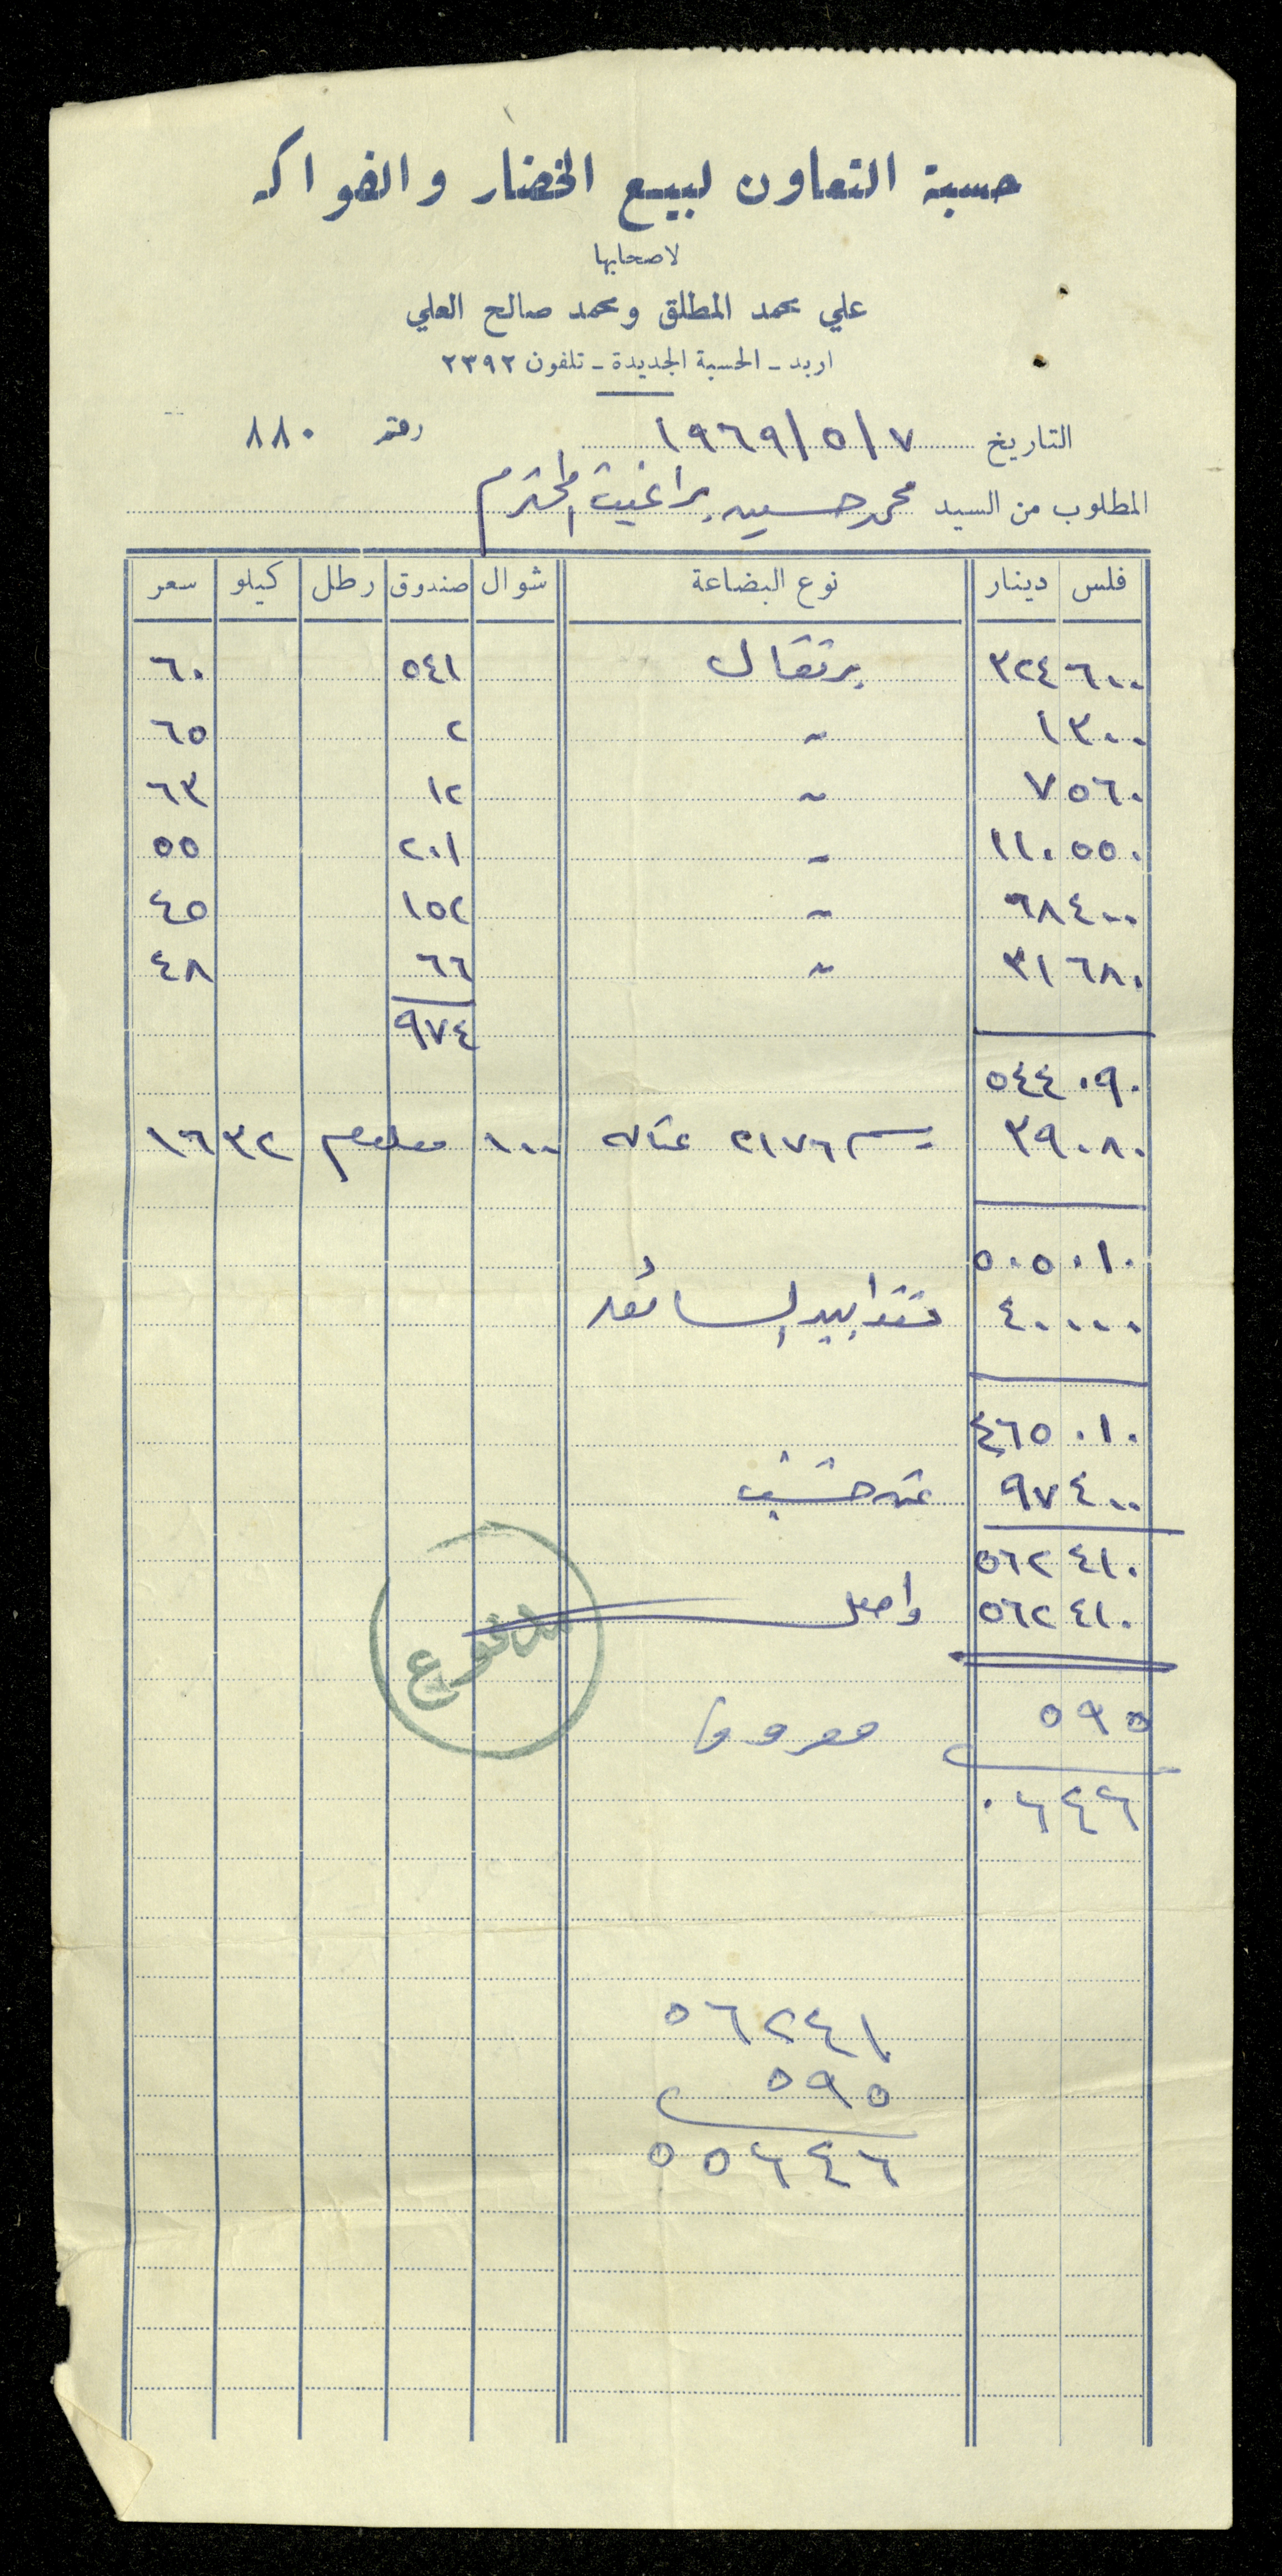 حسبة التعاون لبيع الخضار والفواكه
لاصحابها
علي محمد المطلق ومحمد صالح العلي
اربد ـ الحسبة الجديدة ـ تلفون ٢٣٩٢
التاريخ ٧/٥/١٩٦٩ رقم ٨٨٠
المطلوب من السيد محمد حسين براغيث المحترم
فلس دينار نوع البضاعة شوال صندوق رطل كيلو سعر
٦٠٠ ٣٢٤ برتقال ٥٤١ ٦٠
٣٠٠ ١ " ٢ ٦٥
٥٦٠ ٧ " ١٢ ٦٣
٥٥٠ ١١٠ " ٢٠١ ٥٥
٤٠٠ ٦٨ " ١٥٢ ٤٥
٦٨٠ ٣١ " ٦٦ ٤٨
٩٧٤
٠٩٠ ٥٤٤
٠٨٠ ٣٩ ٢١٧٦ عتاله ١٠٠ ٣٢ ١٦
٠١٠ ٥٠٥
٠٠٠ ٤٠ نقدا بيد السائق
٠١٠ ٤٦٥
٤٠٠ ٩٧ خشب
٤١٠ ٥٦٢
٤١٠ ٥٦٢ واصل
مدفوع
٥٩٥ مصروف
٠٦٤٦
٥٦٢٤١
٥٩٥
٥٥٦٤٦